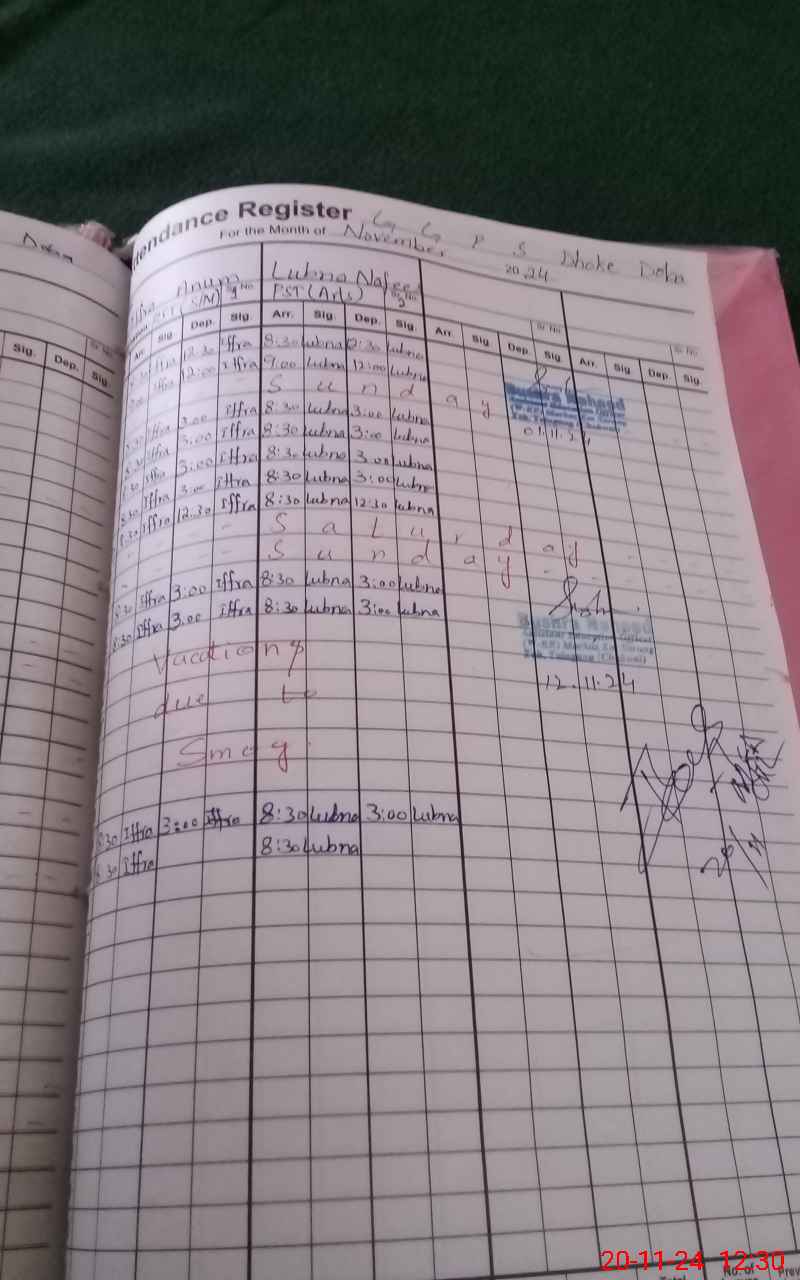 Attendance Register G G P S Dhoke Doba
For the Month of November 2024
Iffra Anum Lubna Nafees
PST (Arts)
Sig. Dep. Sig. Arr. Sig. Dep. Sig. Arr. Sig. Dep. Sig. Arr. Sig. Dep. Sig.
8:30 Iffra 12:30 Iffra 8:30 Lubna 12:30 Lubna
9:00 Iffra 12:00 Iffra 9:00 Lubna 12:00 Lubna
S u n d a y
8:30 Iffra 3:00 Iffra 8:30 Lubna 3:00 Lubna
01.11.24
8:30 Iffra 3:00 Iffra 8:30 Lubna 3:00 Lubna
8:30 Iffra 3:00 Iffra 8:30 Lubna 3:00 Lubna
8:30 Iffra 3:00 Iffra 8:30 Lubna 3:00 Lubna
8:30 Iffra 12:30 Iffra 8:30 Lubna 12:30 Lubna
S a t u r d a y
S u n d a y
8:30 Iffra 3:00 Iffra 8:30 Lubna 3:00 Lubna
8:30 Iffra 3:00 Iffra 8:30 Lubna 3:00 Lubna
Vacations
due to
12.11.24
Smog.
8:30 Iffra 3:00 Iffra 8:30 Lubna 3:00 Lubna
8:30 Iffra 8:30 Lubna
20/11
No. of Prev
20-11-24 12:30